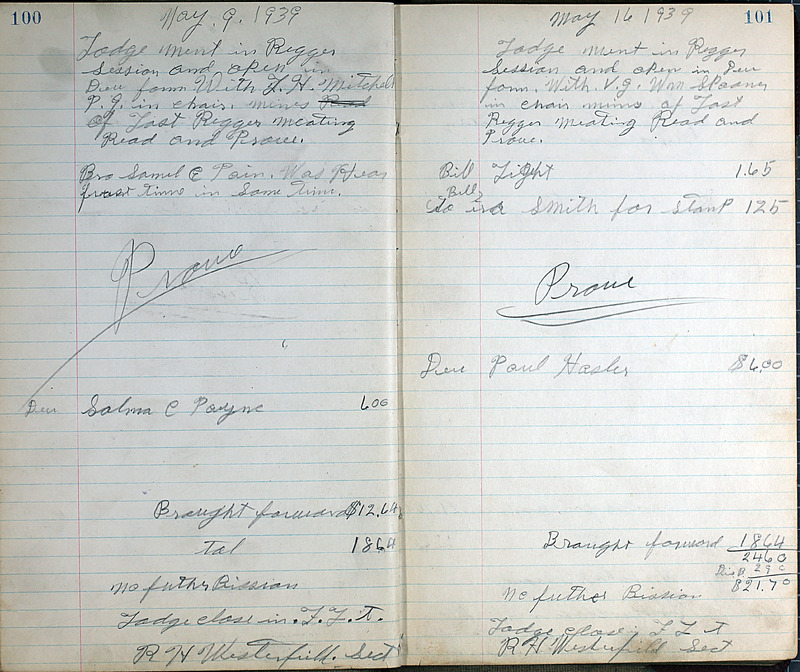 100
May. 9. 1939
Lodge ment in Regger
Session and open in
Due form With L. H. Mitchell
P. G. in chair. mines Read
of Last Regger meating
Read and Prove.
Bro Samel E Pain. Was Hear
frast time in Some time.
Prove
Due Salma C Payne 600
Braught forward $12.64
Tal 1864
no futher Bission
Lodge close in. F. L. T.
R H Westerfield. Sect
101
May 16 1939
Lodge ment in Regger
Session and open in Due
form. With. V. G. Wm Spooner
in chair mins of Last
Regger meating Read and
Prove.
Bill Light 1.65
Bill
to ira Smith for Stanp 125
Prove
Due Paul Hasler $6.00
Braught forward 1864
2460
290
$21.70
no futher Bission
Lodge close. F L T
R H Westerfield Sect